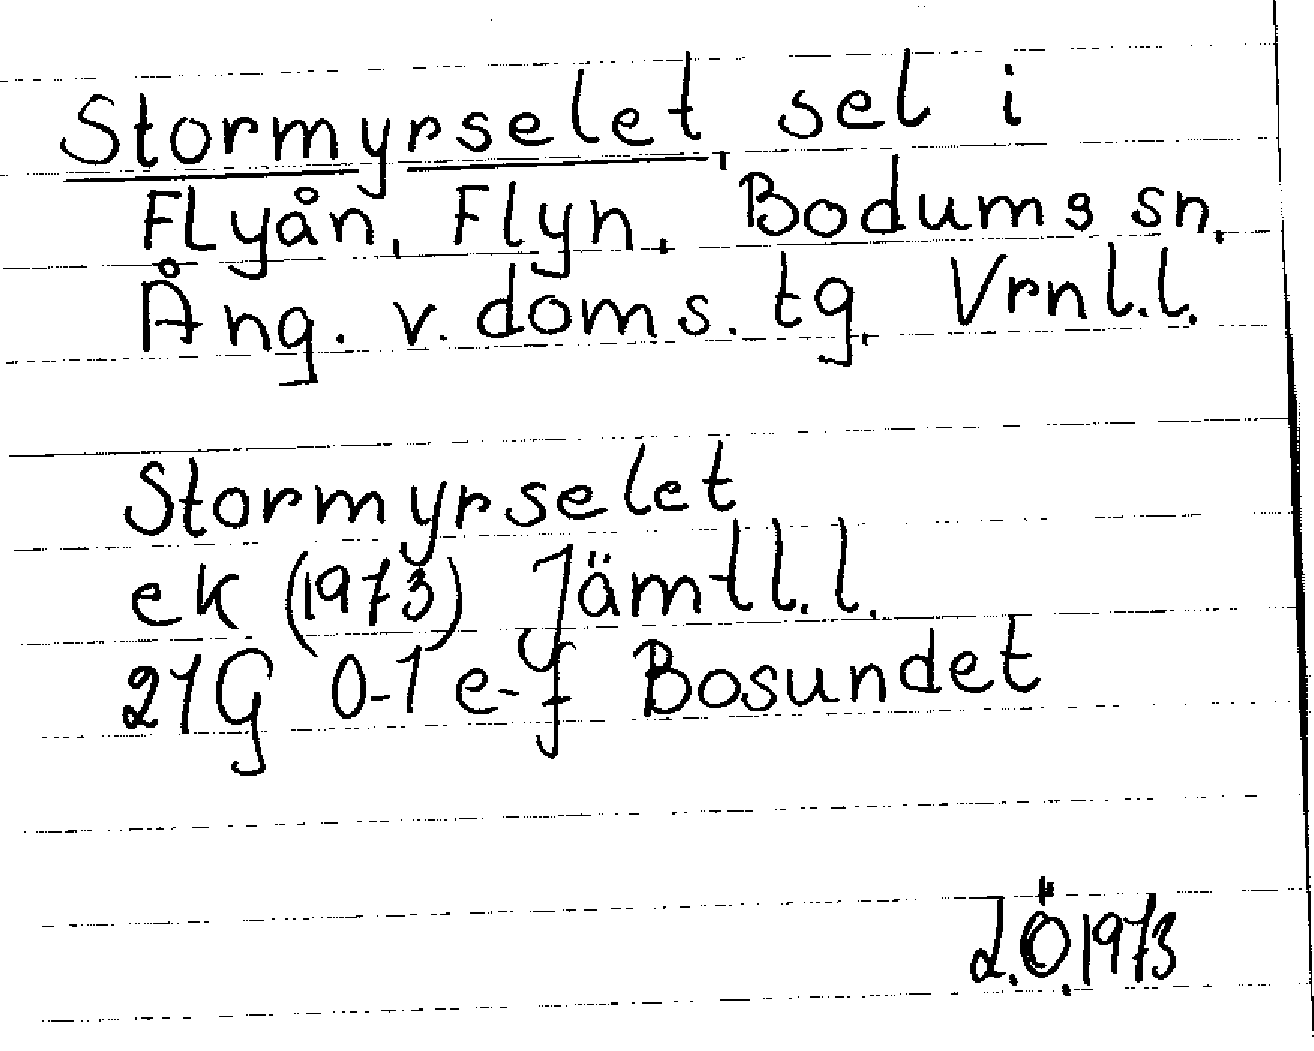 Stormyrselet, sel i
Flyån, Flyn. Bodums sn.
Ång. v. doms. tg. Vrnl.l.
Stormyrselet
ek (1973) Jämtl.l.
21G 0-1 e-f Bosundet
J.Ö.1973